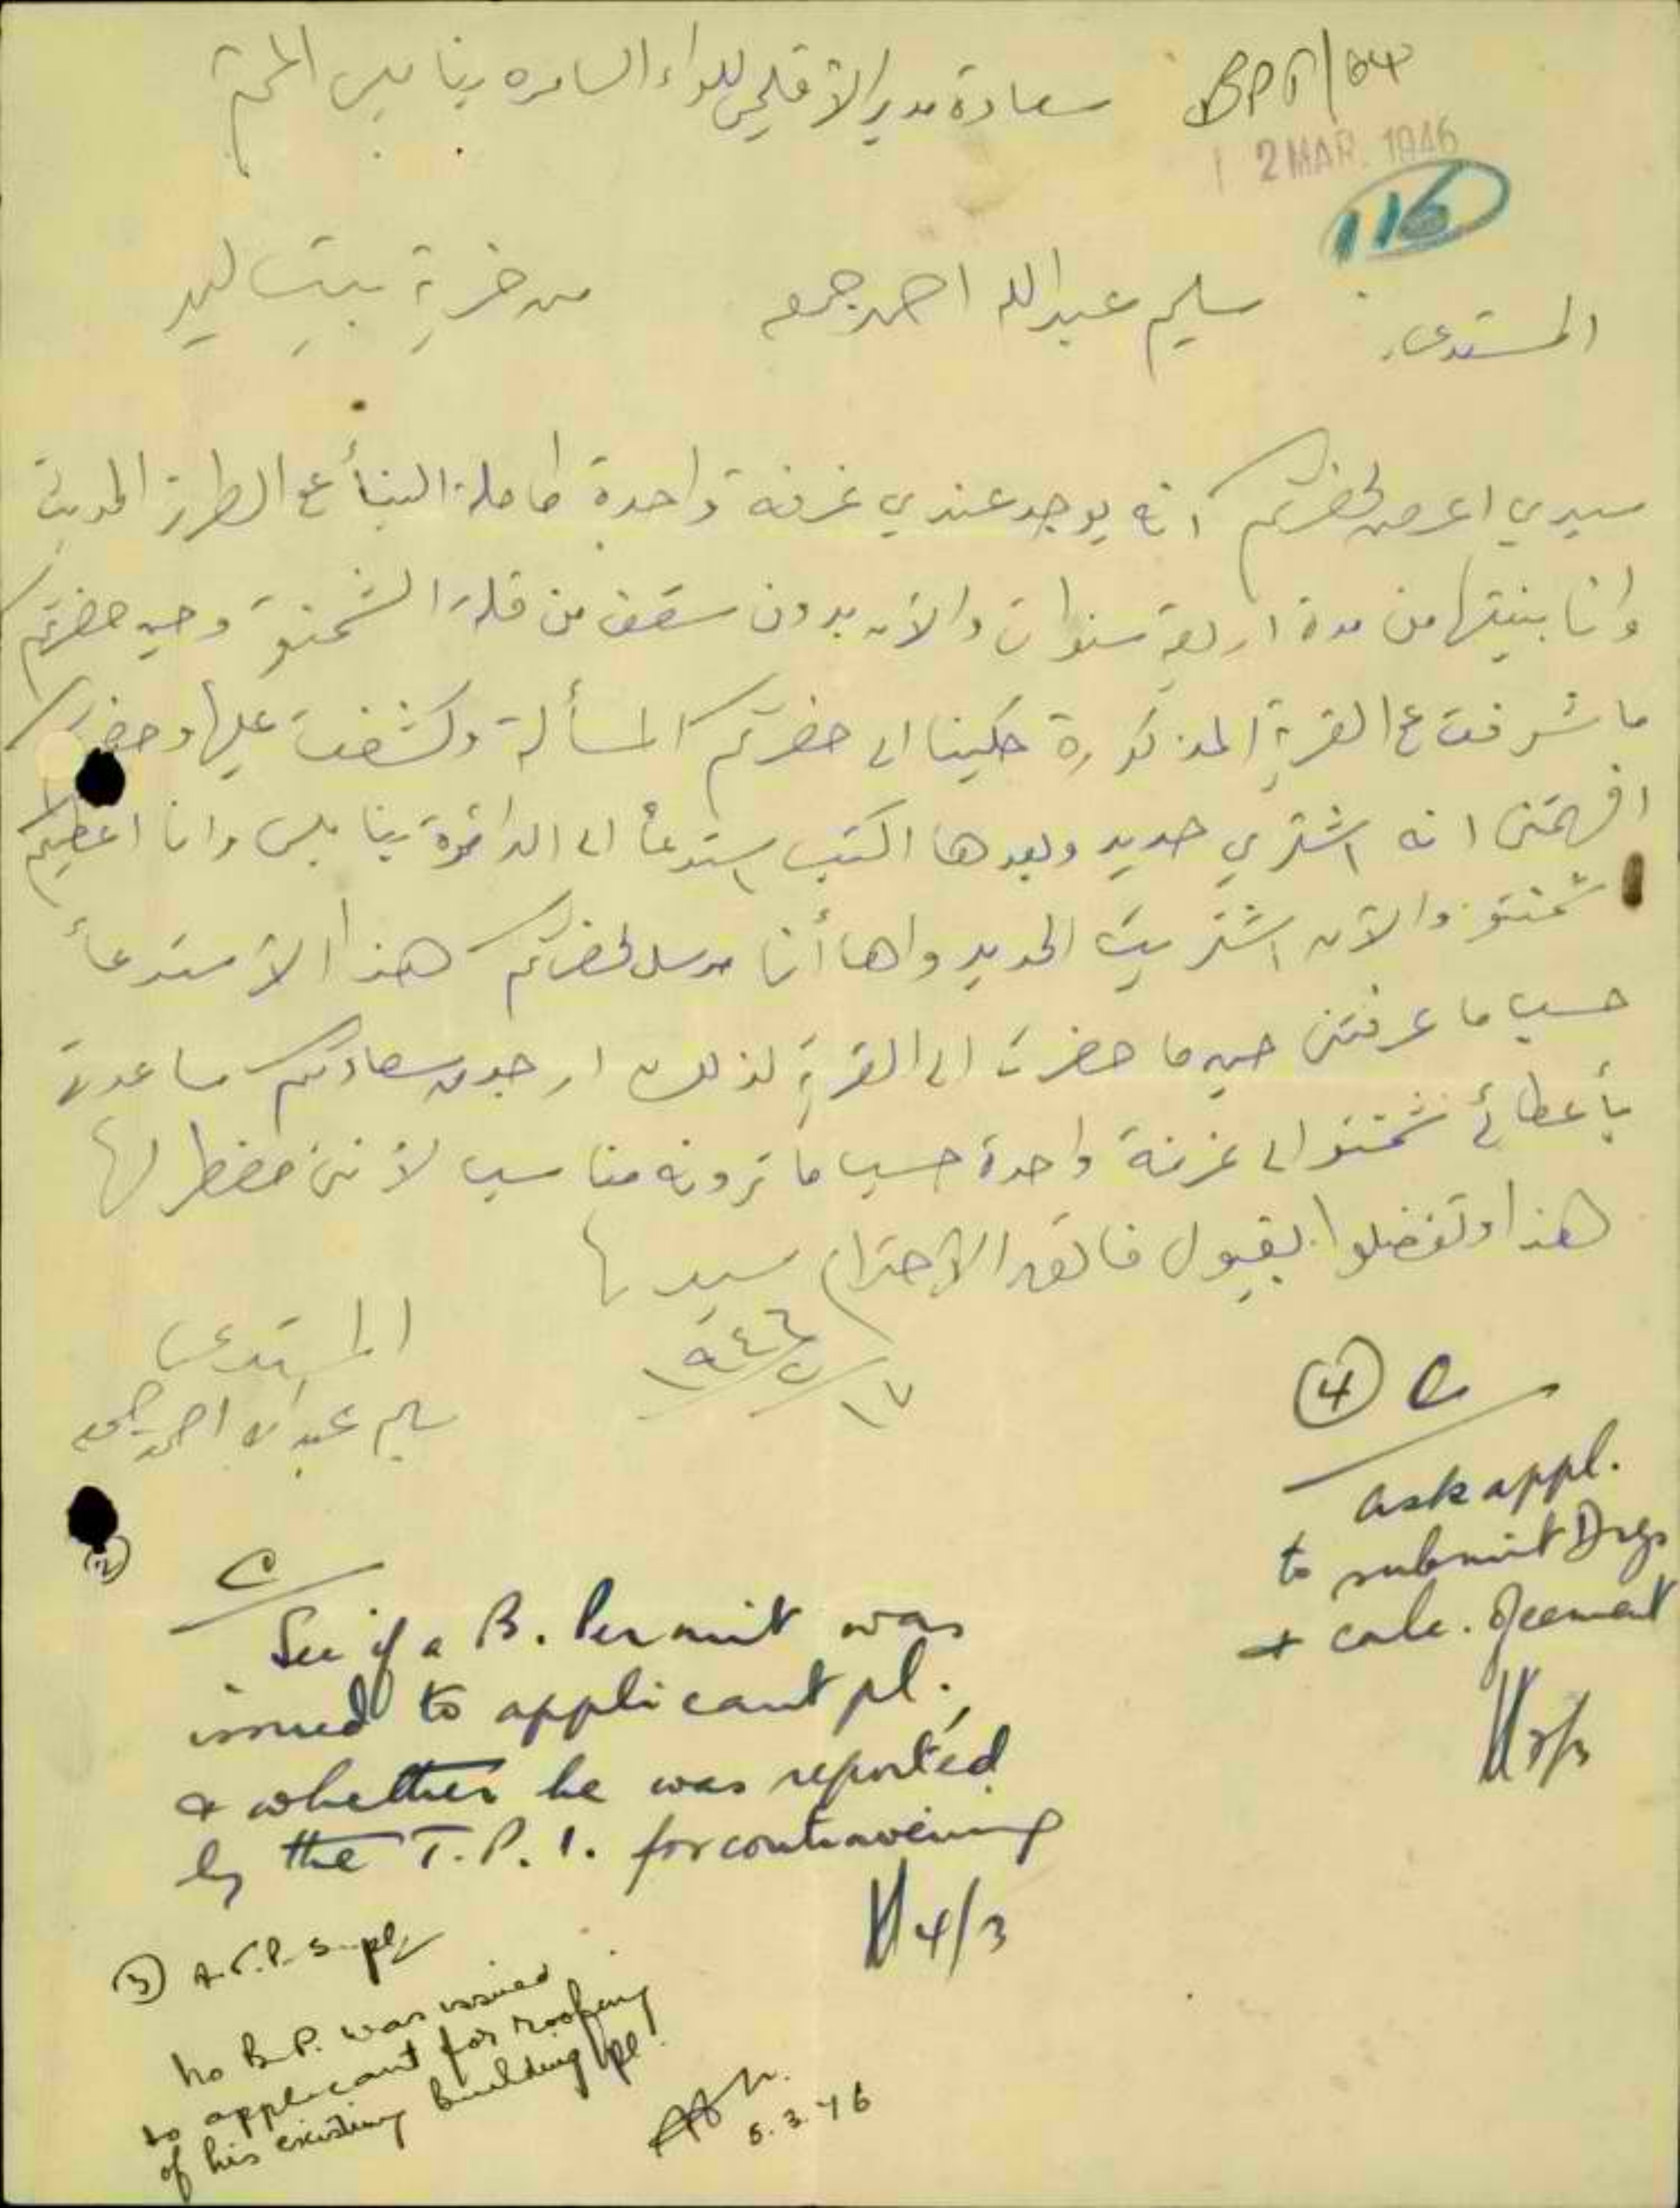 BP5/64
سعادة مدير الاقليمي للواء السامره بنابلس المحترم
2 MAR. 1946
116
المستدعي سليم عبدالله احمد جمعه من خربة بيت ليد
سيدي اعرض لحضرتكم انه يوجد عندي غرفة واحدة كاملة البنأ ع الطرز الحديث
وانا بنيتها من مدة اربعة سنوات والآن بدون سقف من قلة الشمنتو وحين حضرتكم
ما شرفت ع القرية المذكورة حكينا الى حضرتكم المسألة وكشفت عليها وحضرتكم
افهمتني انه اشتري حديد وبعدها اكتب استدعأ الى الدائرة بنابلس وانا اعطيكم
شمنتو والآن اشتريت الحديد واها أنا مرسل لحضرتكم هذا الأستدعأ
حسب ما عرفتني حين ما حضرت الى القرية لذلك ارجو من سعادتكم مساعدتي
بأعطائي شمنتو الى غرفة واحدة حسب ما ترونه مناسب لأنني مضطر لها
هذا وتفضلوا بقبول فائق الاحترام سيدي
١٧/٢/١٩٤٦
المستدعي
سليم عبدالله احمد جمعه
(2) C
See if a B. Permit was
issued to applicant pl.
& whether he was reported
by the T.P.I. for contravening
4/3
(3) A.T.P. S. pl
No B.P. was issued
to applicant for roofing
of his existing building pl.
5.3.46
(4) C
ask appl.
to submit Drgs
& calc. of cement